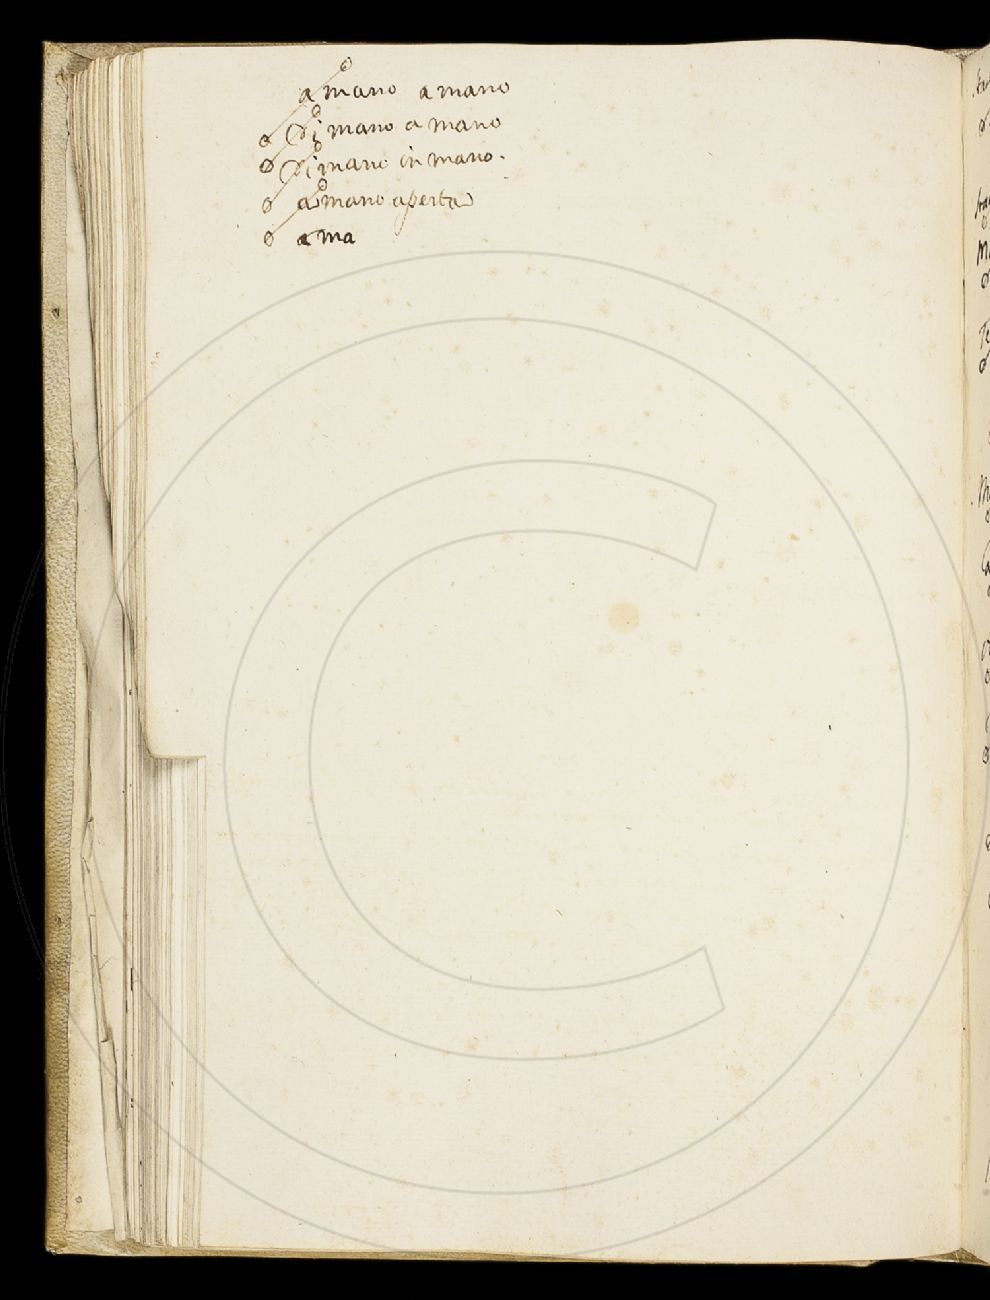 a mano a mano
Di mano a mano
Di mano in mano.
a mano aperta
a ma